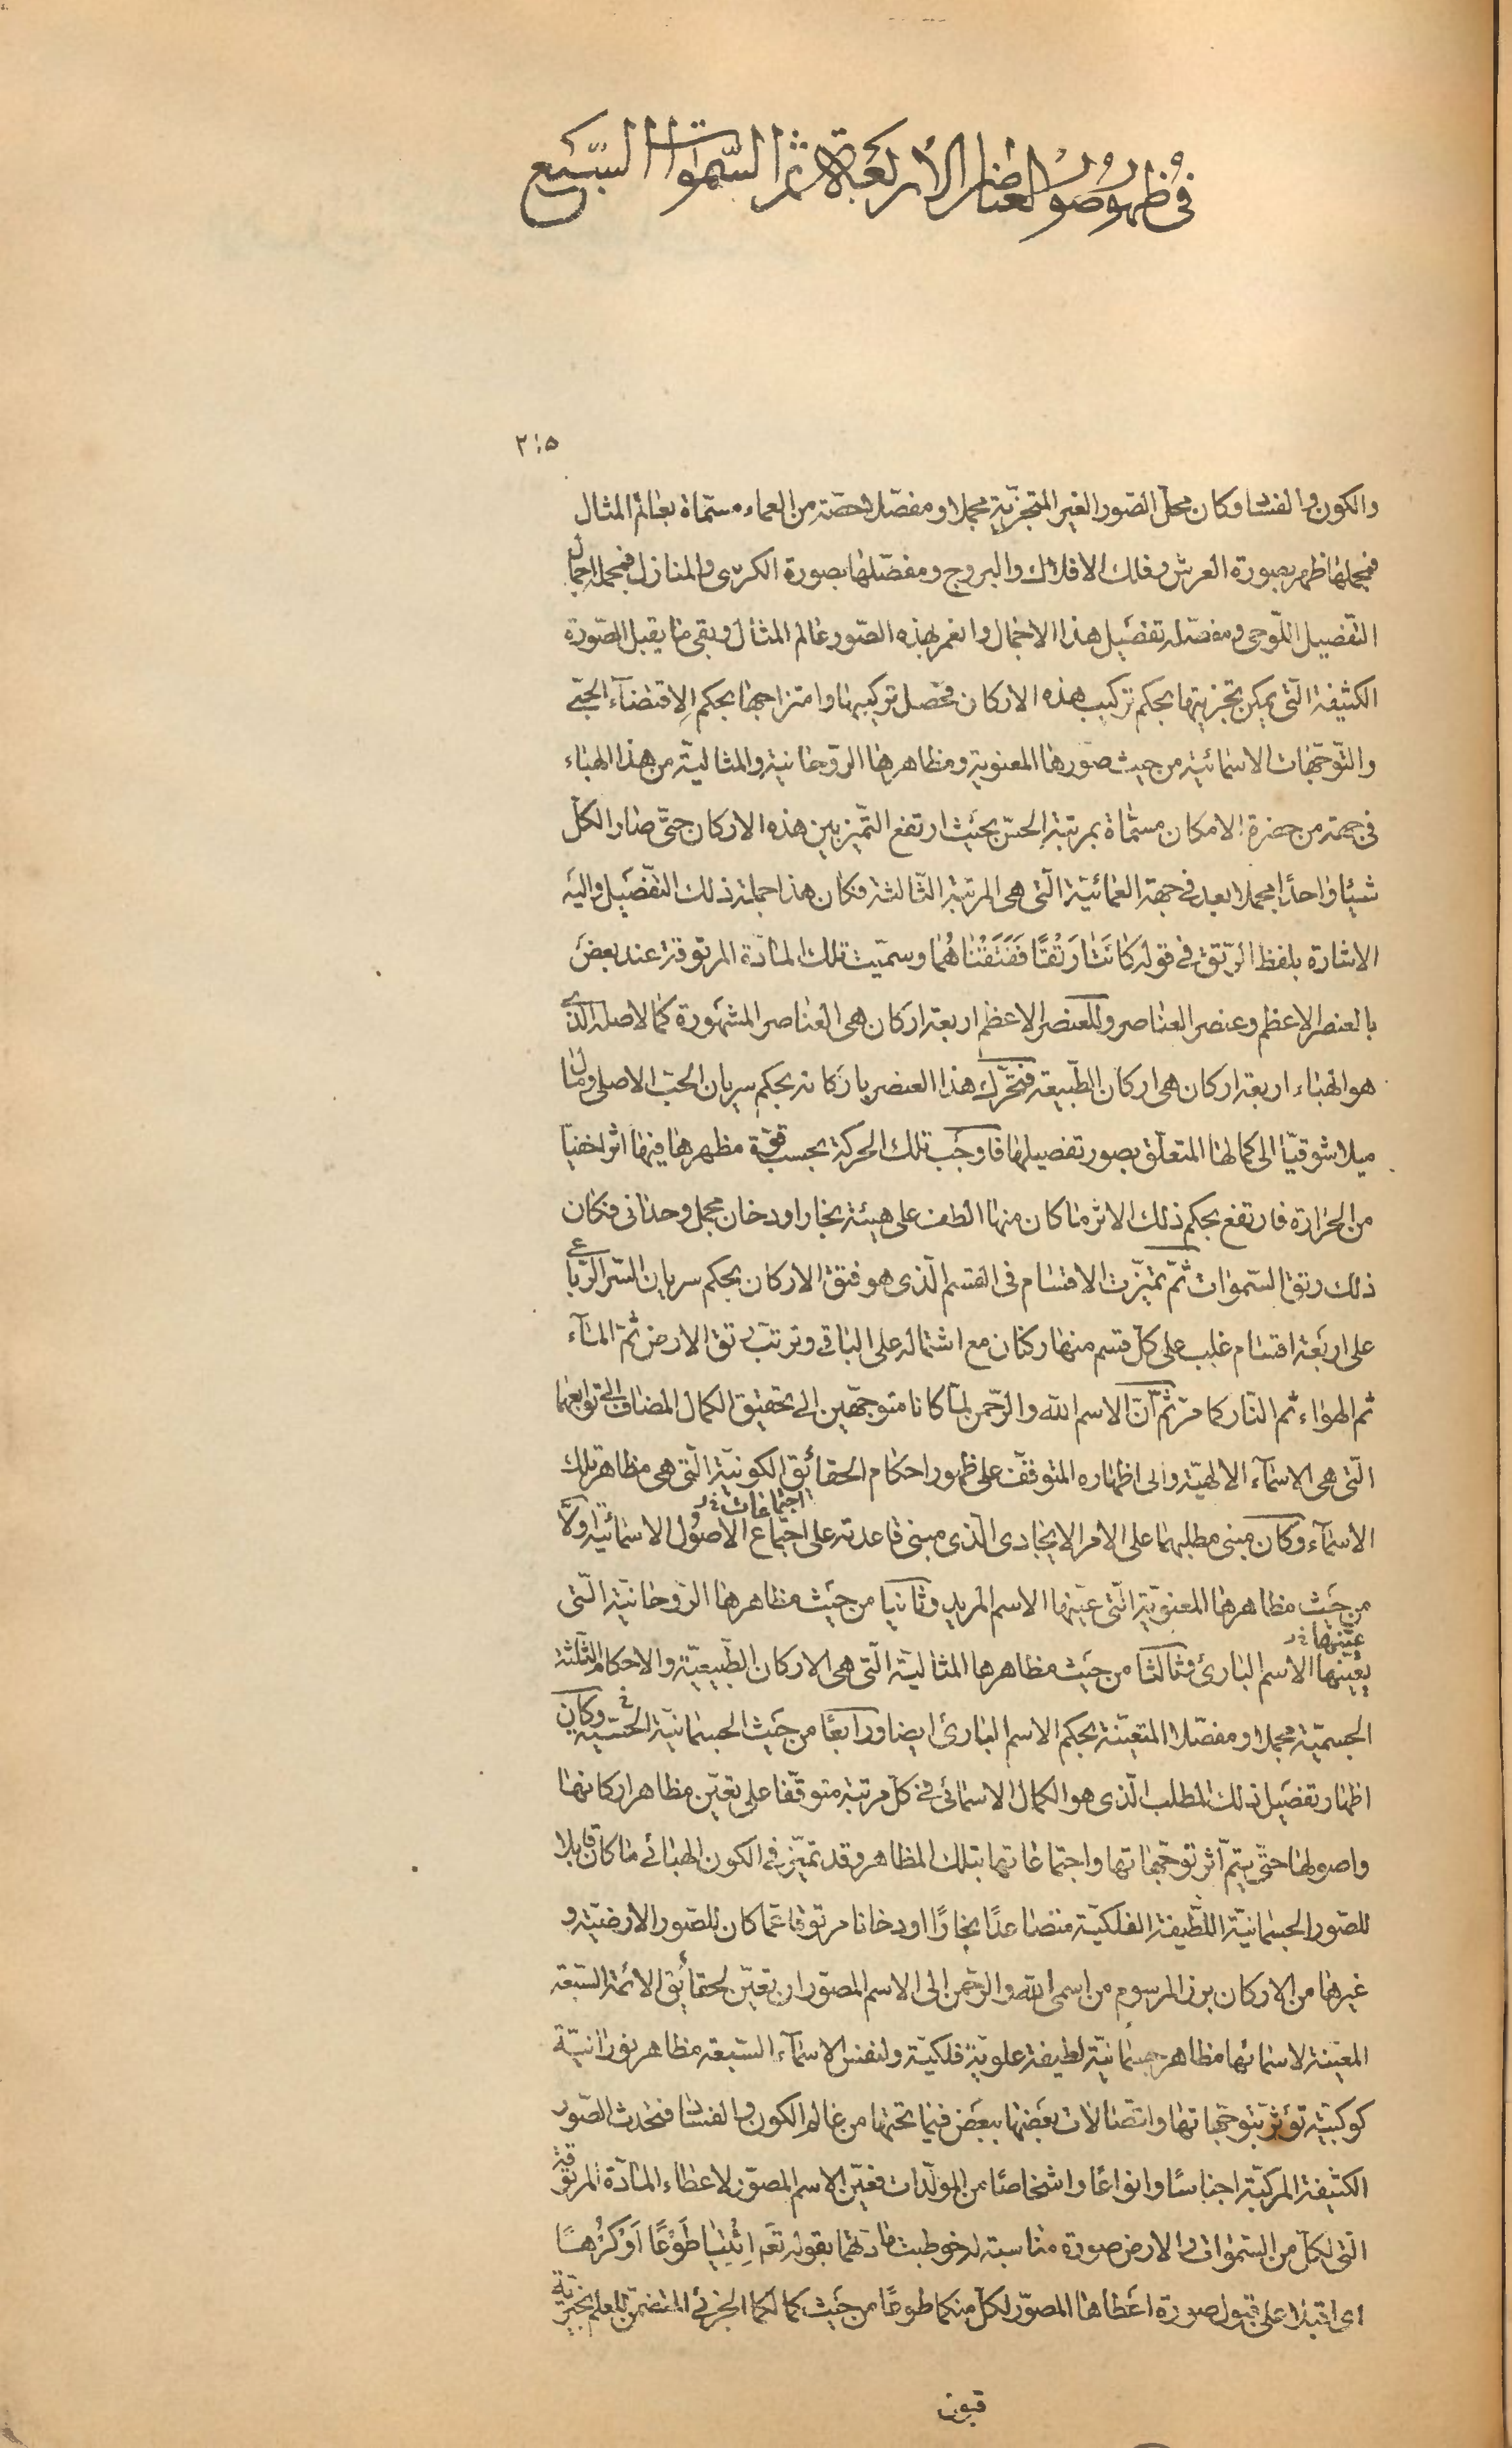 في ظهور صور العناصر الأربعة ثم السموات السبع
٢١٥
والكون والفساد وكان محل الصور الغير المتجزية مجملا ومفصلا حصة من العماء مسماة بعالم المثال
فمجملها ظهر بصورة العرش وفلك الافلاك والبروج ومفصلها بصورة الكرسى والمنازل فمجمله اجمال
التفصيل اللوحى ومفصله تفصيل هذا الاجمال وانغمر بهذه الصور عالم المثال وبقى ما يقبل الصورة
الكثيفة التى يمكن تجزيتها بحكم تركيب هذه الاركان فحصل تركيبها وامتزاجها بحكم الاقتضاء الحبى
والتوجهات الاسمائية من حيث صورها المعنوية ومظاهرها الروحانية والمثالية من هذا الهباء
فى جهة من حضرة الامكان مسماة بمرتبة الحس بحيث ارتفع التميز بين هذه الاركان حتى صار الكل
شيئا واحدا مجملا بعد فى جهة العمائية التى هى المرتبة الثالثة فكان هذا جملة ذلك التفصيل واليه
الاشارة بلفظ الرتق فى قوله كَانَتَا رَتْقًا فَفَتَقْنَاهُمَا وسميت تلك المادة المرتوقة عند بعض
بالعنصر الاعظم وعنصر العناصر وللعنصر الاعظم اربعة اركان هى العناصر المشهورة كما لاصله الذى
هو الهباء اربعة اركان هى اركان الطبيعة فتحرك هذا العنصر باركانه بحكم سريان الحب الاصلى ومال
ميلا شوقيا الى كمالها المتعلق بصور تفصيلها فاوجب تلك الحركة بحسب قوة مظهرها فيها اثرا خفيا
من الحرارة فارتفع بحكم ذلك الاثر ما كان منها الطف على هيئة بخار او دخان مجمل وحدانى فكان
ذلك رتق السموات ثم تميزت الاقسام فى القسم الذى هو فتق الاركان بحكم سريان السر الرباعى
على اربعة اقسام غلب على كل قسم منها ركنان مع اشتماله على الباقى وترتب رتق الارض ثم الماء
ثم الهواء ثم النار كما مر ثم ان الاسم الله والرحمن لما كانا متوجهين الى تحقيق الكمال المضاف الى توابعهما
التى هى الاسماء الالهية والى اظهاره المتوقف على ظهور احكام الحقائق الكونية التى هى مظاهر تلك
اجتماعات خ ر
الاسماء وكان مبنى مطلبهما على الامر الايجادى الذى مبنى قاعدته على اجتماع الاصول الاسمائية اولا
من حيث مظاهرها المعنوية التى عينها الاسم المريد وثانيا من حيث مظاهرها الروحانية التى
عينها خ ر
يعينها الاسم البارئ وثالثا من حيث مظاهرها المثالية التى هى الاركان الطبيعية والاحكام الثلثة
الجسمية مجملا ومفصلا المتعينة بحكم الاسم البارئ ايضا ورابعا من حيث الجسمانية الحسية وكان فى
اظهار تفصيل ذلك المطلب الذى هو الكمال الاسمائى فى كل مرتبة متوقفا على تعين مظاهر اركانها
واصولها حتى يتم اثر توجهاتها واجتماعاتها بتلك المظاهر وقد تميز فى الكون الهبائى ما كان قابلا
للصور الجسمانية اللطيفة الفلكية متصاعدا بخارا او دخانا مرتوقا عما كان للصور الارضية و
غيرها من الاركان برز المرسوم من اسمى الله والرحمن الى الاسم المصور ان تعين لحقائق الائمة السبعة
المعينة لاسمائها مظاهر جسمانية لطيفة علوية فلكية ولنفس الاسماء السبعة مظاهر نورانية
كوكبية تؤثر بتوجهاتها واتصالات بعضها ببعض فيما تحتها من عالم الكون والفساد فتحدث الصور
الكثيفة المركبة اجناسا وانواعا واشخاصا من المولدات فعين الاسم المصور لاعطاء المادة المرتوقة
التى لكل من السموات والارض صورة مناسبة له خوطبت مادتهما بقوله تعـ اِئْتِيَا طَوْعًا اَوْ كَرْهًا
اى اقبلا على قبول صورة اعطاها المصور لكل منكما طوعا من حيث كمالكما الجزئى المتضمن للعلم بخيرية
قبول